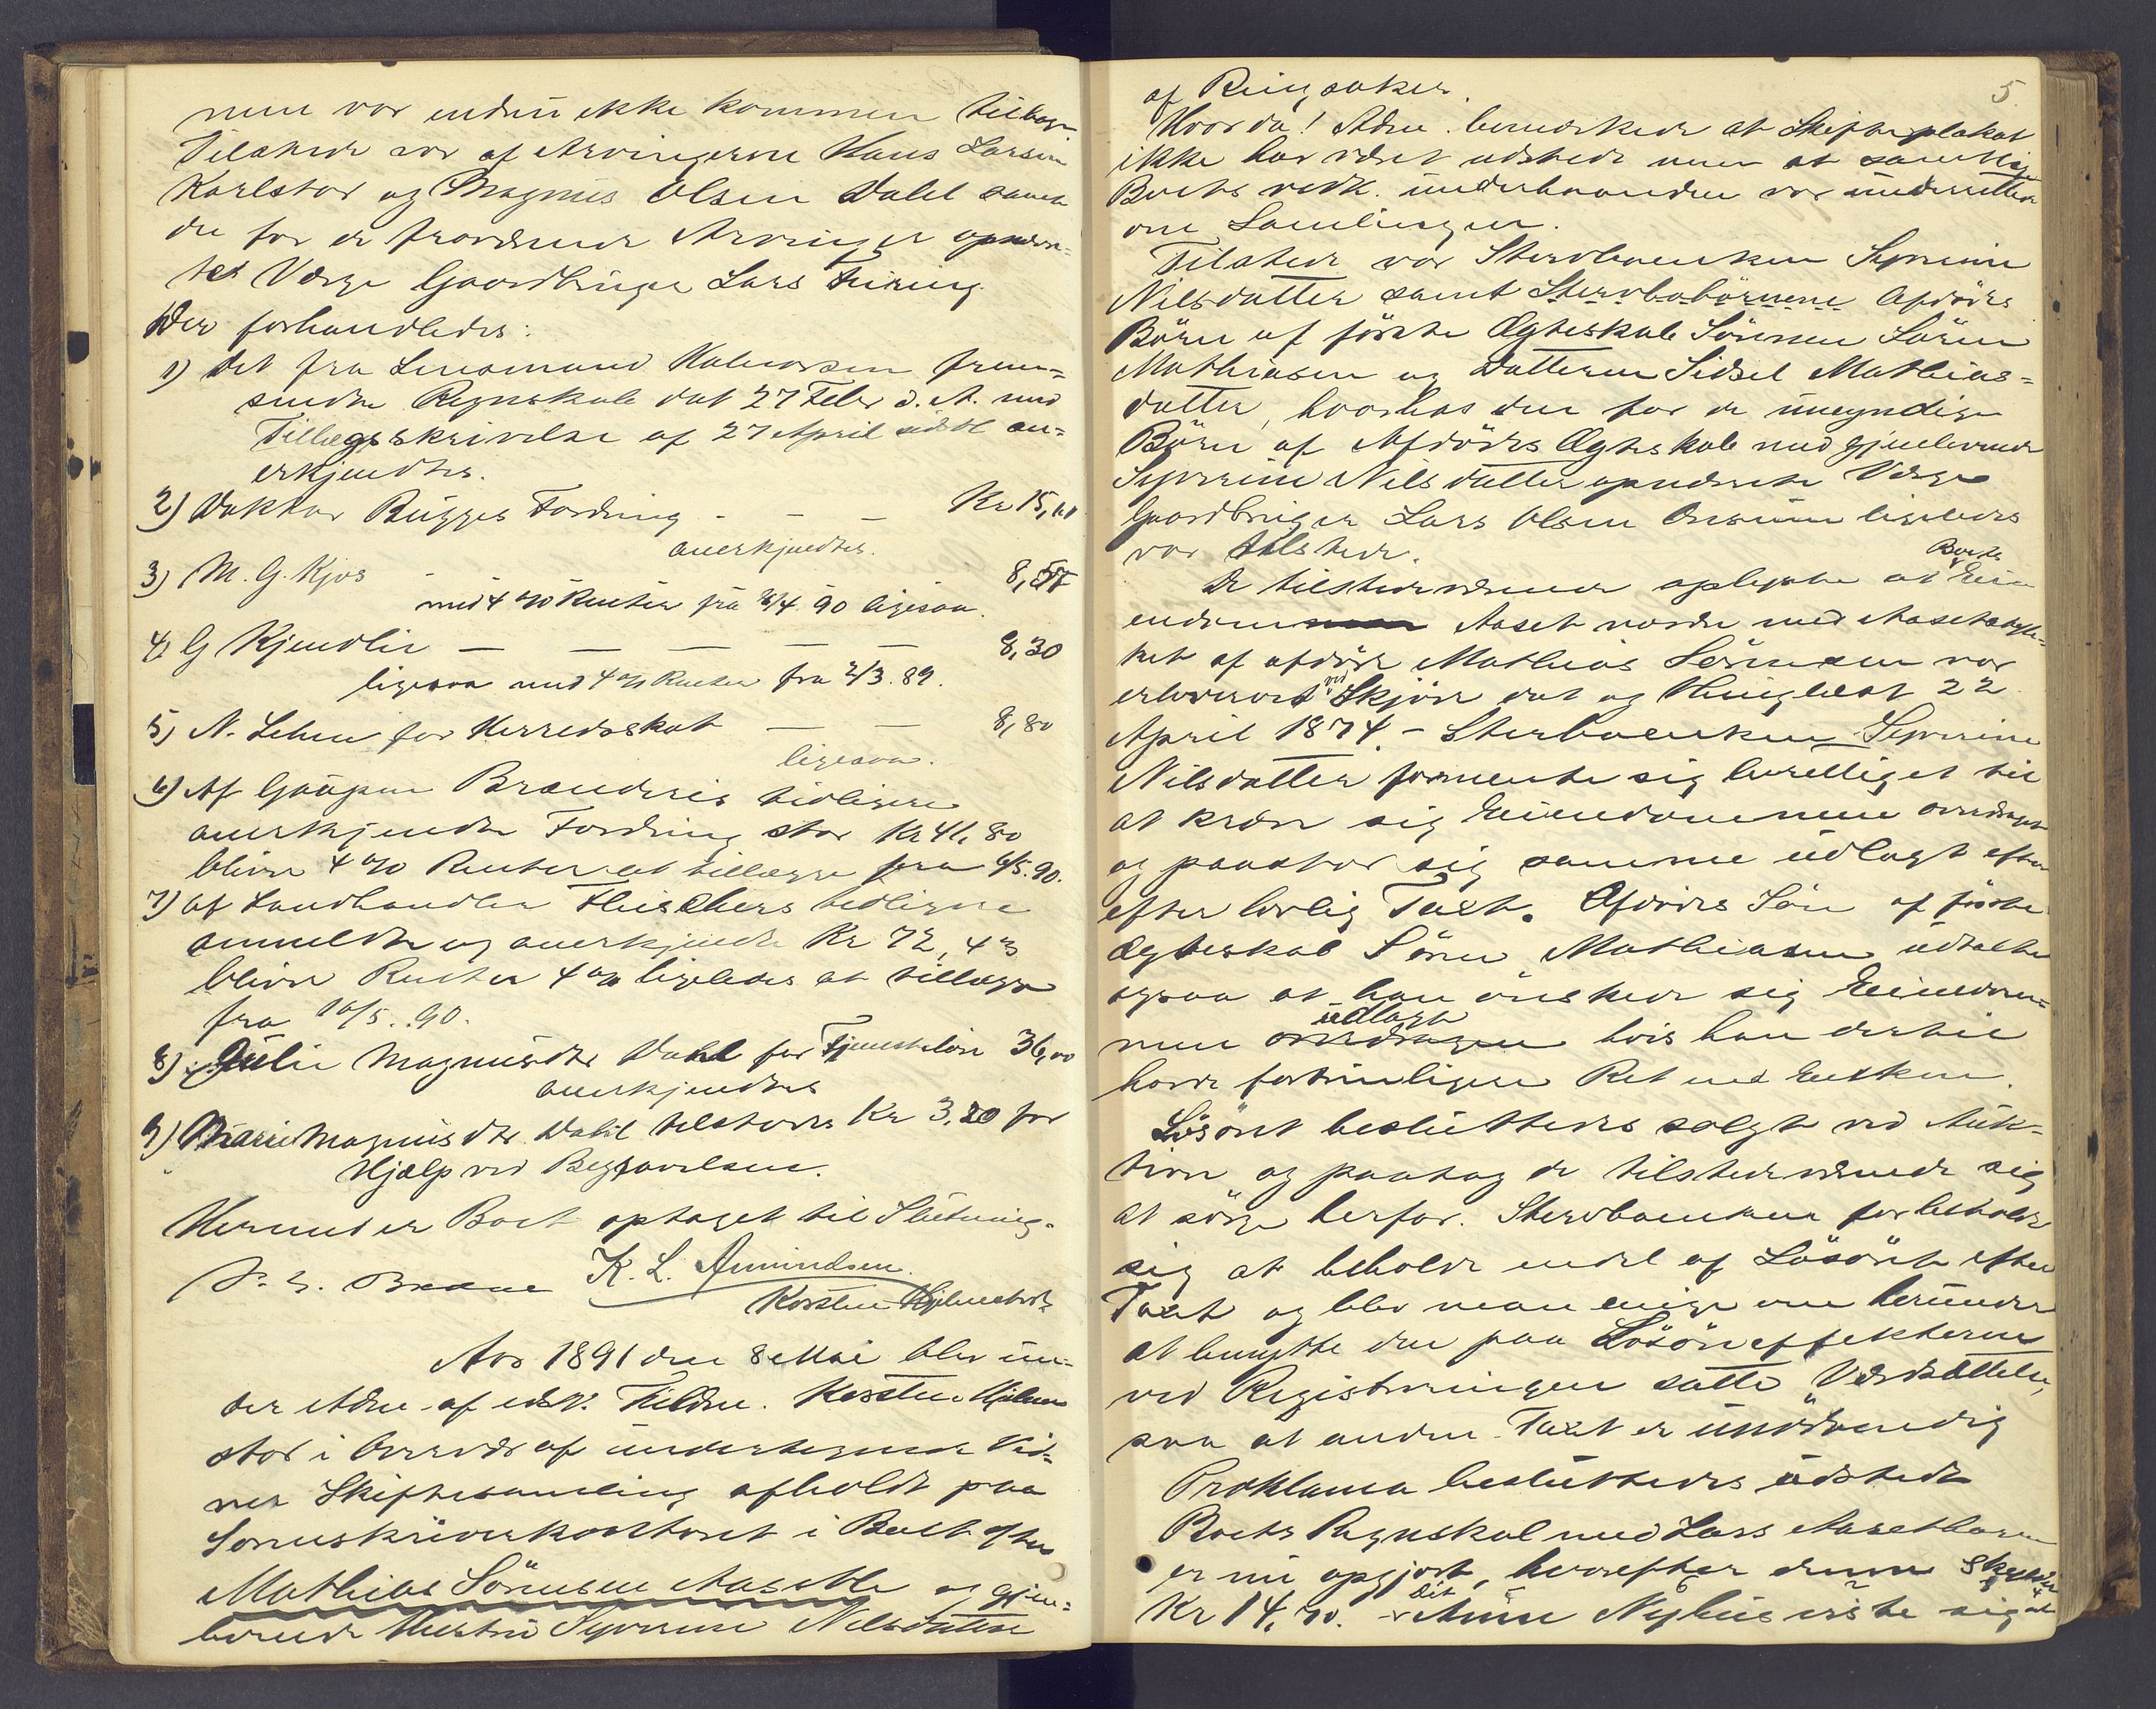 men var endnu ikke kommen tilbage.
Tilstede var af Arvingerne Hans Larsen
Karlstad og Magnus Olsen Dahl samt
den for de fraværende Arvinger opnævn-
te Værge Gaardbruger Lars Furing.
Der forhandledes:
1) Det fra Lensmand Halvorsen frem-
sendte Regnskab dat 27 Febr d. A. med
Tillægsskrivelse af 27 April sidstl an-
erkjendtes.
2) Doktor Bugges Fordring - - - Kr 15,00
anerkjendtes.
3) M. G. Kjos - 8,
med 4 % Renter fra /4 90 ligesaa.
4) G Kjendlie - - - - - 8,30
ligesaa med 4 % Renter fra 2/3. 89.
5) N. Lehne for Herredsskat - - 8,80
ligesaa.
6) Af Brænderis tidligere
anerkjendte Fordring stor Kr 41,80
bliver 4 % Renter at tillægge fra 6/5. 90.
7) Af Landhandler Fleischers tidligere
anmeldte og anerkjendte Kr 72,43
bliver Renter 4 % ligeledes at tillægge
fra 10/5. 90.
8) Julie Magnusdtr Dahl for Tjenesteløn 36,00
anerkjendtes
9) Marie Magnusdtr Dahl tilstodes Kr 3,20 for
Hjælp ved Begravelsen.
Hermed er Boet optaget til Slutning.
K. L. Amundsen.
Karsten Hjelmstad
Aar 1891 den 8 Mai blev un-
der Adm. af edsv. Fuldm. Karsten Hjelm-
stad i Overvær af undertegnede Vid-
ner Skiftesamling afholdt paa
Sorenskriverkontoret i Boet efter
Mathias Sörensen Aasetble og gjen-
levende Hustru Syverine Nilsdatter
5
af Ringsaker.
Hvorda! Adm. bemærkede at Skifteplakat
ikke har været udstedt men at samtlige
Boets vedk. underhaanden var underrettet
om Samlingen.
Tilstede var Sterbboenken Syverine
Nilsdatter samt Sterbbobörnene Afdödes
Börn af förste Ægteskab Sönnen Sören
Mathiasen og Datteren Sidsel Mathias-
datter, hvorhos den for de umyndige
Börn af Afdödes Ægteskab med gjenlevende
Syverine Nilsdatter opnævnte Værge
Gaardbruger Lars Olsen ligeledes
var tilstede.
De tilstedeværende oplyste at Boets Eien
endom Aaset nordre med Aasethaug-
et af afdöde Mathias Sörensen var
erhvervet ved Skjöde dat og thinglæst 22
April 1874. - Sterbboenken Syverine
Nilsdatter formente sig berettiget til
at kræve sig Eiendommene overdraget
og paastod sig samme udlagt efter
efter lovlig Taxt. Afdödes Sön af förste
Ægteskab Sören Mathiasen udtalte
ogsaa at han önskede sig Eiendom-
men udlagt hvis han dertil
havde fortrinligere Ret end Enken.
Lösöret besluttedes solgt ved Auk-
tion og paatog de tilstedeværende sig
at sörge herfor. Sterbboenken forbeholdt
sig at beholde endel af Lösöret efter
Taxt og blev man enige om herunder
at benytte den paa Lösöreeffekterne
ved Registreringen satte Værdsættelse,
saa at anden Taxt er unödvendig
Proklama besluttedes udstedt
Boets Regnskab med Lars Aasethaug
er nu opgjort, hvorefter denne skylder
Kr 14,70. - Anne Nyhus viste sig at